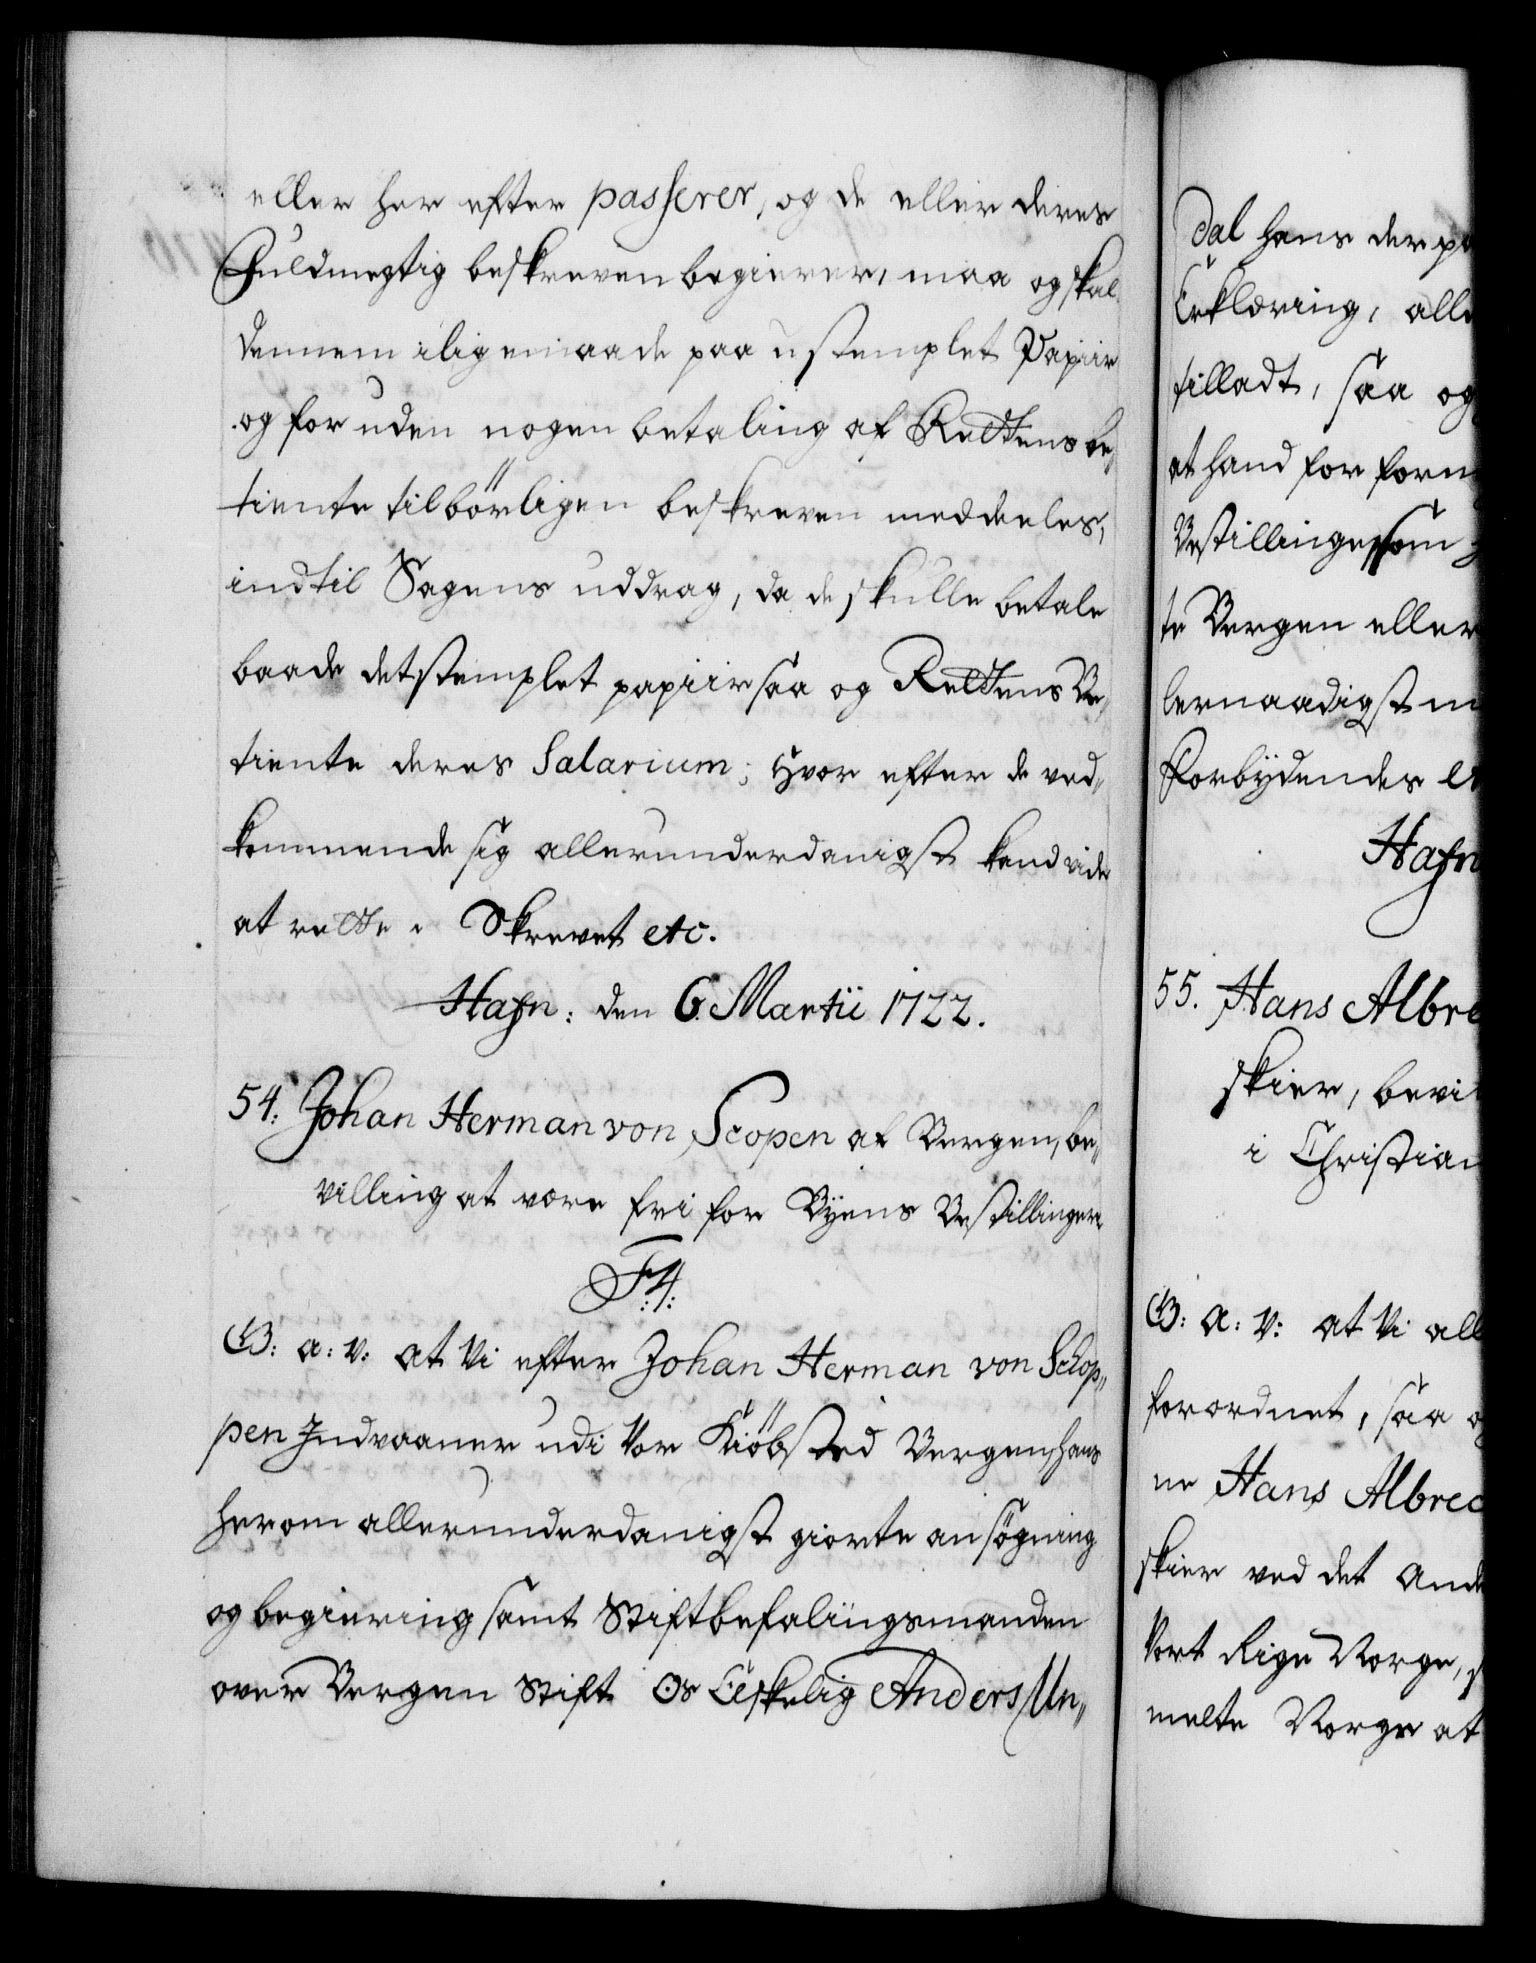 eller her efter passerer, og de eller deres
Fuldmegtig beskreven begierer, maa og skal
dennem iligemaade paa ustemplet Papiir
og for uden nogen betaling af Rettens be,,
tiente tilbörligen beskreven meddeeles,
indtil Sagens uddrag, da de skulle betale
baade det stemplet papiir saa og Rettens Be,,
tiente deres Salarium; Hvor efter de ved,,
kommende sig allerunderdanigst hand vide
at rette. Skrevet etc.
Hafn: den 6. Martii 1722.
54. Johan Herman von Scopen af Bergen, be,,
villing at være fri for Byens Bestillinger.
F:4:
G: a: v: at Vi efter Johan Herman von Schop,,
pen Indvaaner udi Vor Kiöbsted Bergen, hans
herom allerunderdanigst giorte ansögning
og begiering samt Stiftbefalingsmanden
over Bergen Stift Os Elskelig Anders Un,,
dal hans der
Erklæring, alle
tilladt, saa og
at hand for
Bestillinger som
te Bergen eller
lernaadigst
Forbÿdendes
Hafn
55. Hans Albre
skier, bevi
i Christian
G: a: v: at Vi all
forordnet, saa
ne Hans Albrec
skier ved det And
Vort Rige Norge,
melte Norge at